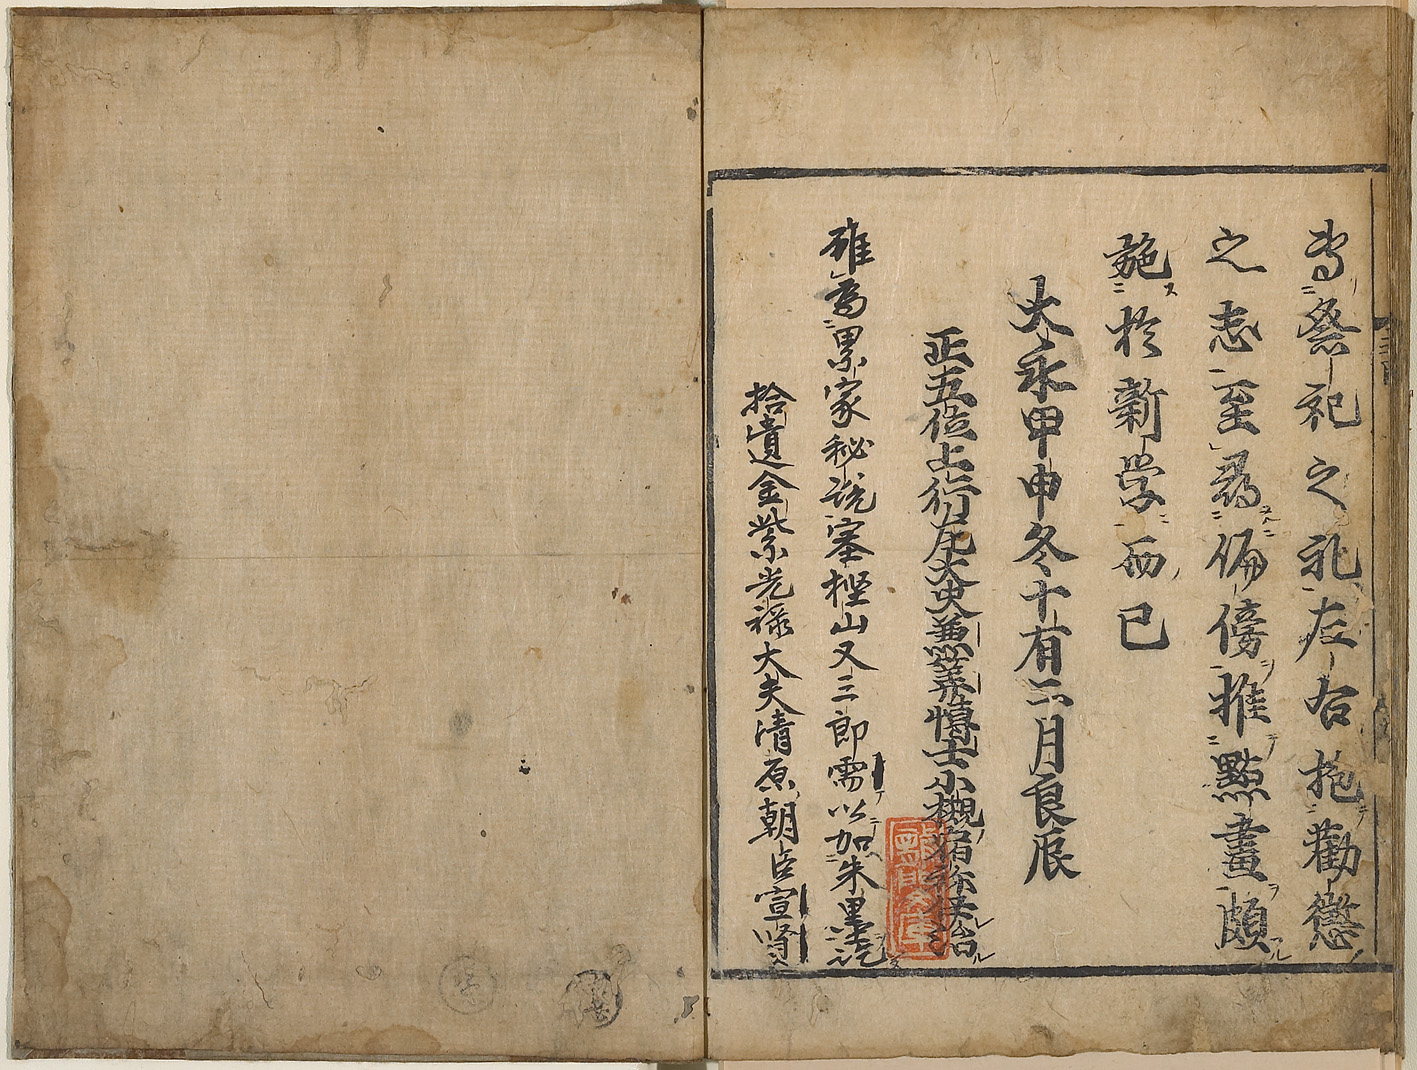 専祭祀之礼左右抱勸懲
之志至爲偏傍推點畫頗
施於新学而已
大永甲申冬十有二月良辰
正五位上行左大史兼筭博士小槻宿祢伊治
雖爲累家秘説寨樫山又三郎需以加朱墨訖
拾遺金紫光禄大夫清原朝臣宣賢